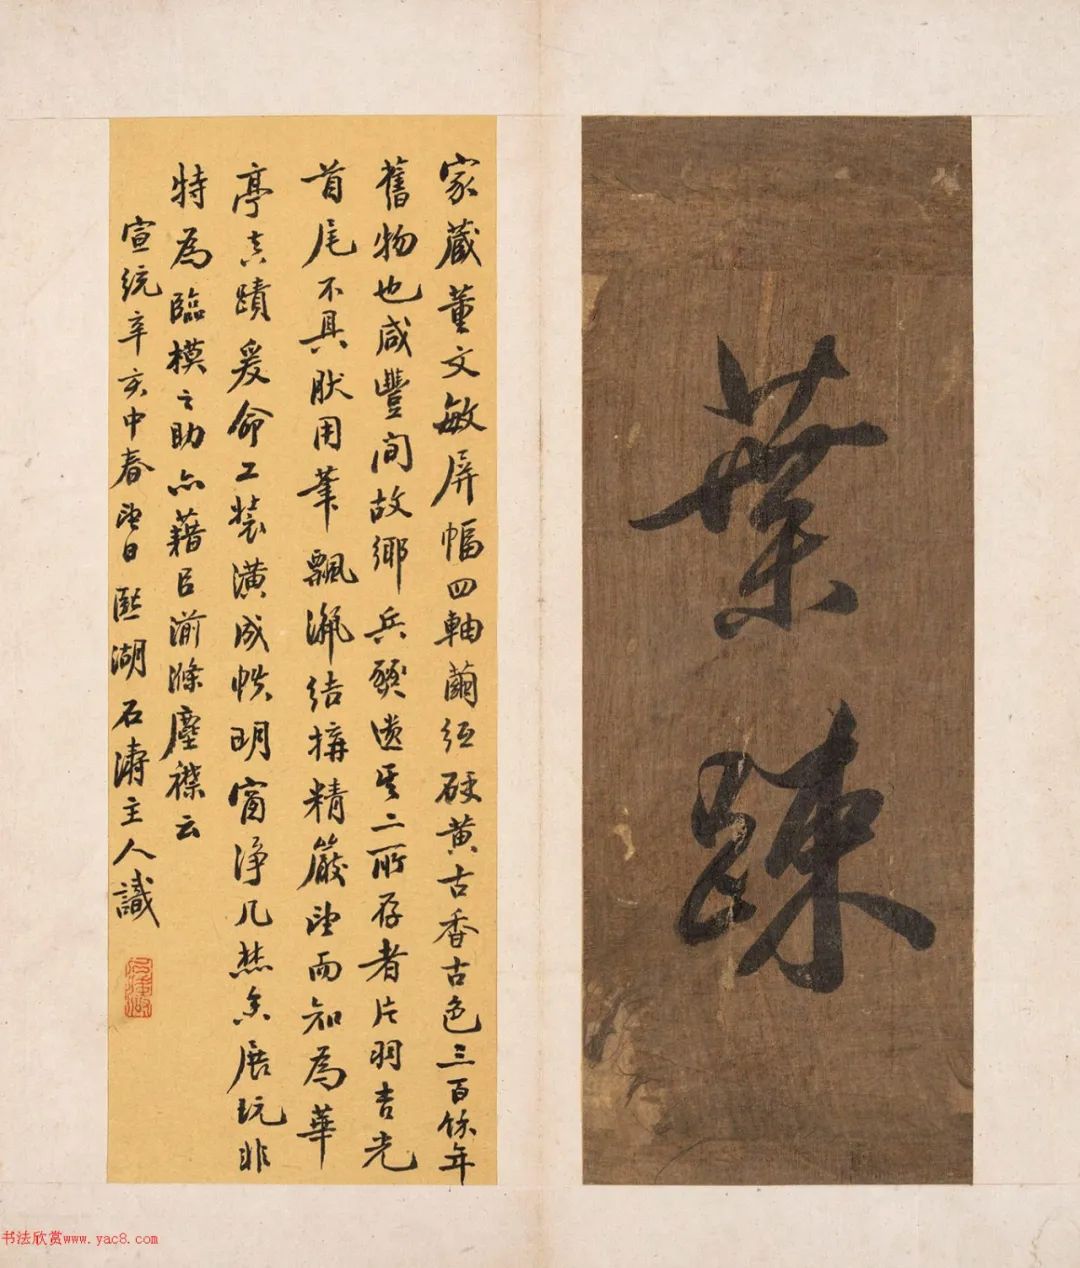 葉
疎
家藏董文敏屏幅四軸繭紙硬黃古香古色三百餘年
舊物也咸豐間故鄉兵燹遺其二所存者片羽吉光
首尾不具肰用筆飄渺結搆精嚴望而知為華
亭真蹟爰命工裝潢成帙明窗淨几焚香展玩非
特為臨模之助亦藉以湔滌塵襟云
宣統辛亥中春望日 湖石濤主人識
书法欣赏www.yac8.com